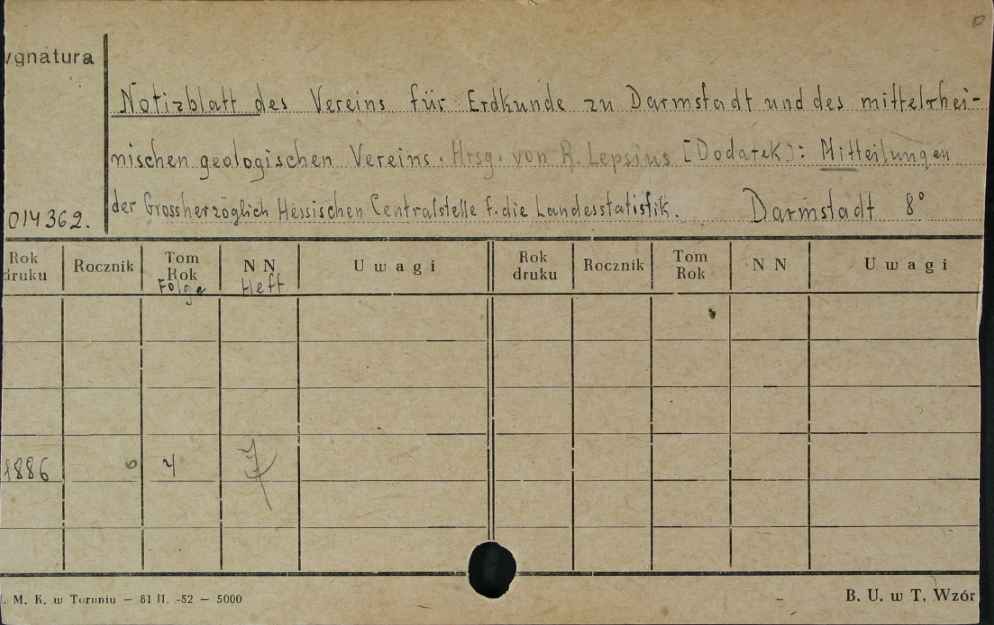 ygnatura
Notizblatt des Vereins für Erdkunde zu Darmstadt und des mittelrhei-
nischen geologischen Vereins. Hrsg. von R. Lepsius [Dodatek]: Mitteilungen
der Grossherzöglich Hessischen Centralstelle f. die Landesstatistik. Darmstadt 8°
014362.
Rok druku Rocznik Tom Rok Folge N N Heft U w a g i Rok druku Rocznik Tom Rok N N U w a g i
1886 4 7
. M. K. w Toruniu — 81 II. -52 — 5000 B. U. w T. Wzór